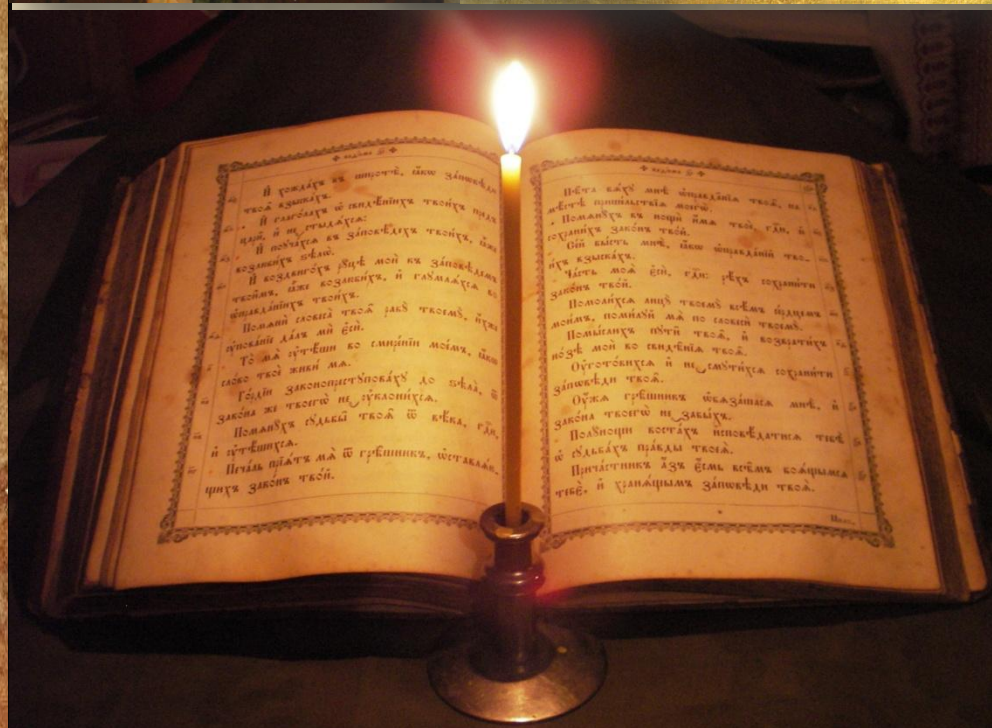 И҆ хождáхъ въ широтѣ̀, ꙗ҆́кѡ зáпѡвѣди
твоѧ̑ взыскáхъ.
И҆ глагóлахъ ѡ҆ свидѣ́нїихъ твои́хъ пред̾
цари̑, и҆ не стыдѧ́хсѧ:
И҆ поꙋчáхсѧ въ зáповѣдехъ твои́хъ, ꙗ҆̀же
возлюби́хъ ѕѣлѡ̀.
И҆ воздвиго́хъ рꙋ́цѣ мои̑ къ зáповѣдемъ
твои̑мъ, ꙗ҆̀же возлюби́хъ, и҆ глꙋмлѧ́хсѧ во
ѡ҆правдáнїихъ твои́хъ.
Помѧнѝ словеса̀ твоѧ̑ рабꙋ̀ твоемꙋ̀, и҆́хже
ᲂу҆повáнїе дáлъ мѝ є҆сѝ.
То̀ мѧ̀ ᲂу҆тѣ́ши во смире́нїи мое́мъ, ꙗ҆́кѡ
сло́во твоѐ живи́ мѧ.
Го́рдїи законопрестꙋповáхꙋ до ѕѣлà, ѿ
зако́на же твоегѡ̀ не ᲂу҆клони́хсѧ.
Помѧнꙋ́хъ сꙋдьбы̑ твоѧ̑ ѿ вѣ́ка, гдⷭ҇и,
и҆ ᲂу҆тѣ́шихсѧ.
Печа́ль прїѧ́тъ мѧ̀ ѿ грѣ̑шникъ, ѡ҆ставлѧ́ю-
щихъ зако́нъ тво́й.
Пѣ̑та бѧ́хꙋ мнѣ̀ ѡ҆правдáнїѧ твоѧ̑, на
мѣ́стѣ прише́льствїѧ моегѡ̀.
Помѧнꙋ́хъ въ нощѝ и҆́мѧ твоѐ, гдⷭ҇и, и҆
сохрани́хъ зако́нъ тво́й.
Се́й бы́сть мнѣ̀, ꙗ҆́кѡ ѡ҆правдáнїй тво-
и́хъ взыскáхъ.
Чáсть моѧ̀ є҆сѝ, гдⷭ҇и: рѣ́хъ сохрани́ти
зако́нъ тво́й.
Помоли́хсѧ лицꙋ̀ твоемꙋ̀ всѣ́мъ се́рдцемъ
мои́мъ, поми́лꙋй мѧ̀ по словесѝ твоемꙋ̀.
Помы́слихъ пꙋти̑ твоѧ̑, и҆ возврати́хъ
но́зѣ мои̑ во свидѣ̑нїѧ твоѧ̑.
Оу҆гото́вихсѧ и҆ не смꙋти́хсѧ сохрани́ти
зáпѡвѣди твоѧ̑.
Оу҆́жѧ грѣ̑шникъ ѡ҆бѧзáшасѧ мнѣ̀, и҆
зако́на твоегѡ̀ не забы́хъ.
Полꙋ́нощи востáхъ и҆сповѣ́датисѧ тебѣ̀
ѡ҆ сꙋдьбáхъ прáвды твоеѧ̀.
Причáстникъ а҆́зъ є҆́смь всѣ̑мъ боѧ́щымсѧ
тебє̀, и҆ хранѧ́щымъ зáпѡвѣди твоѧ̑.